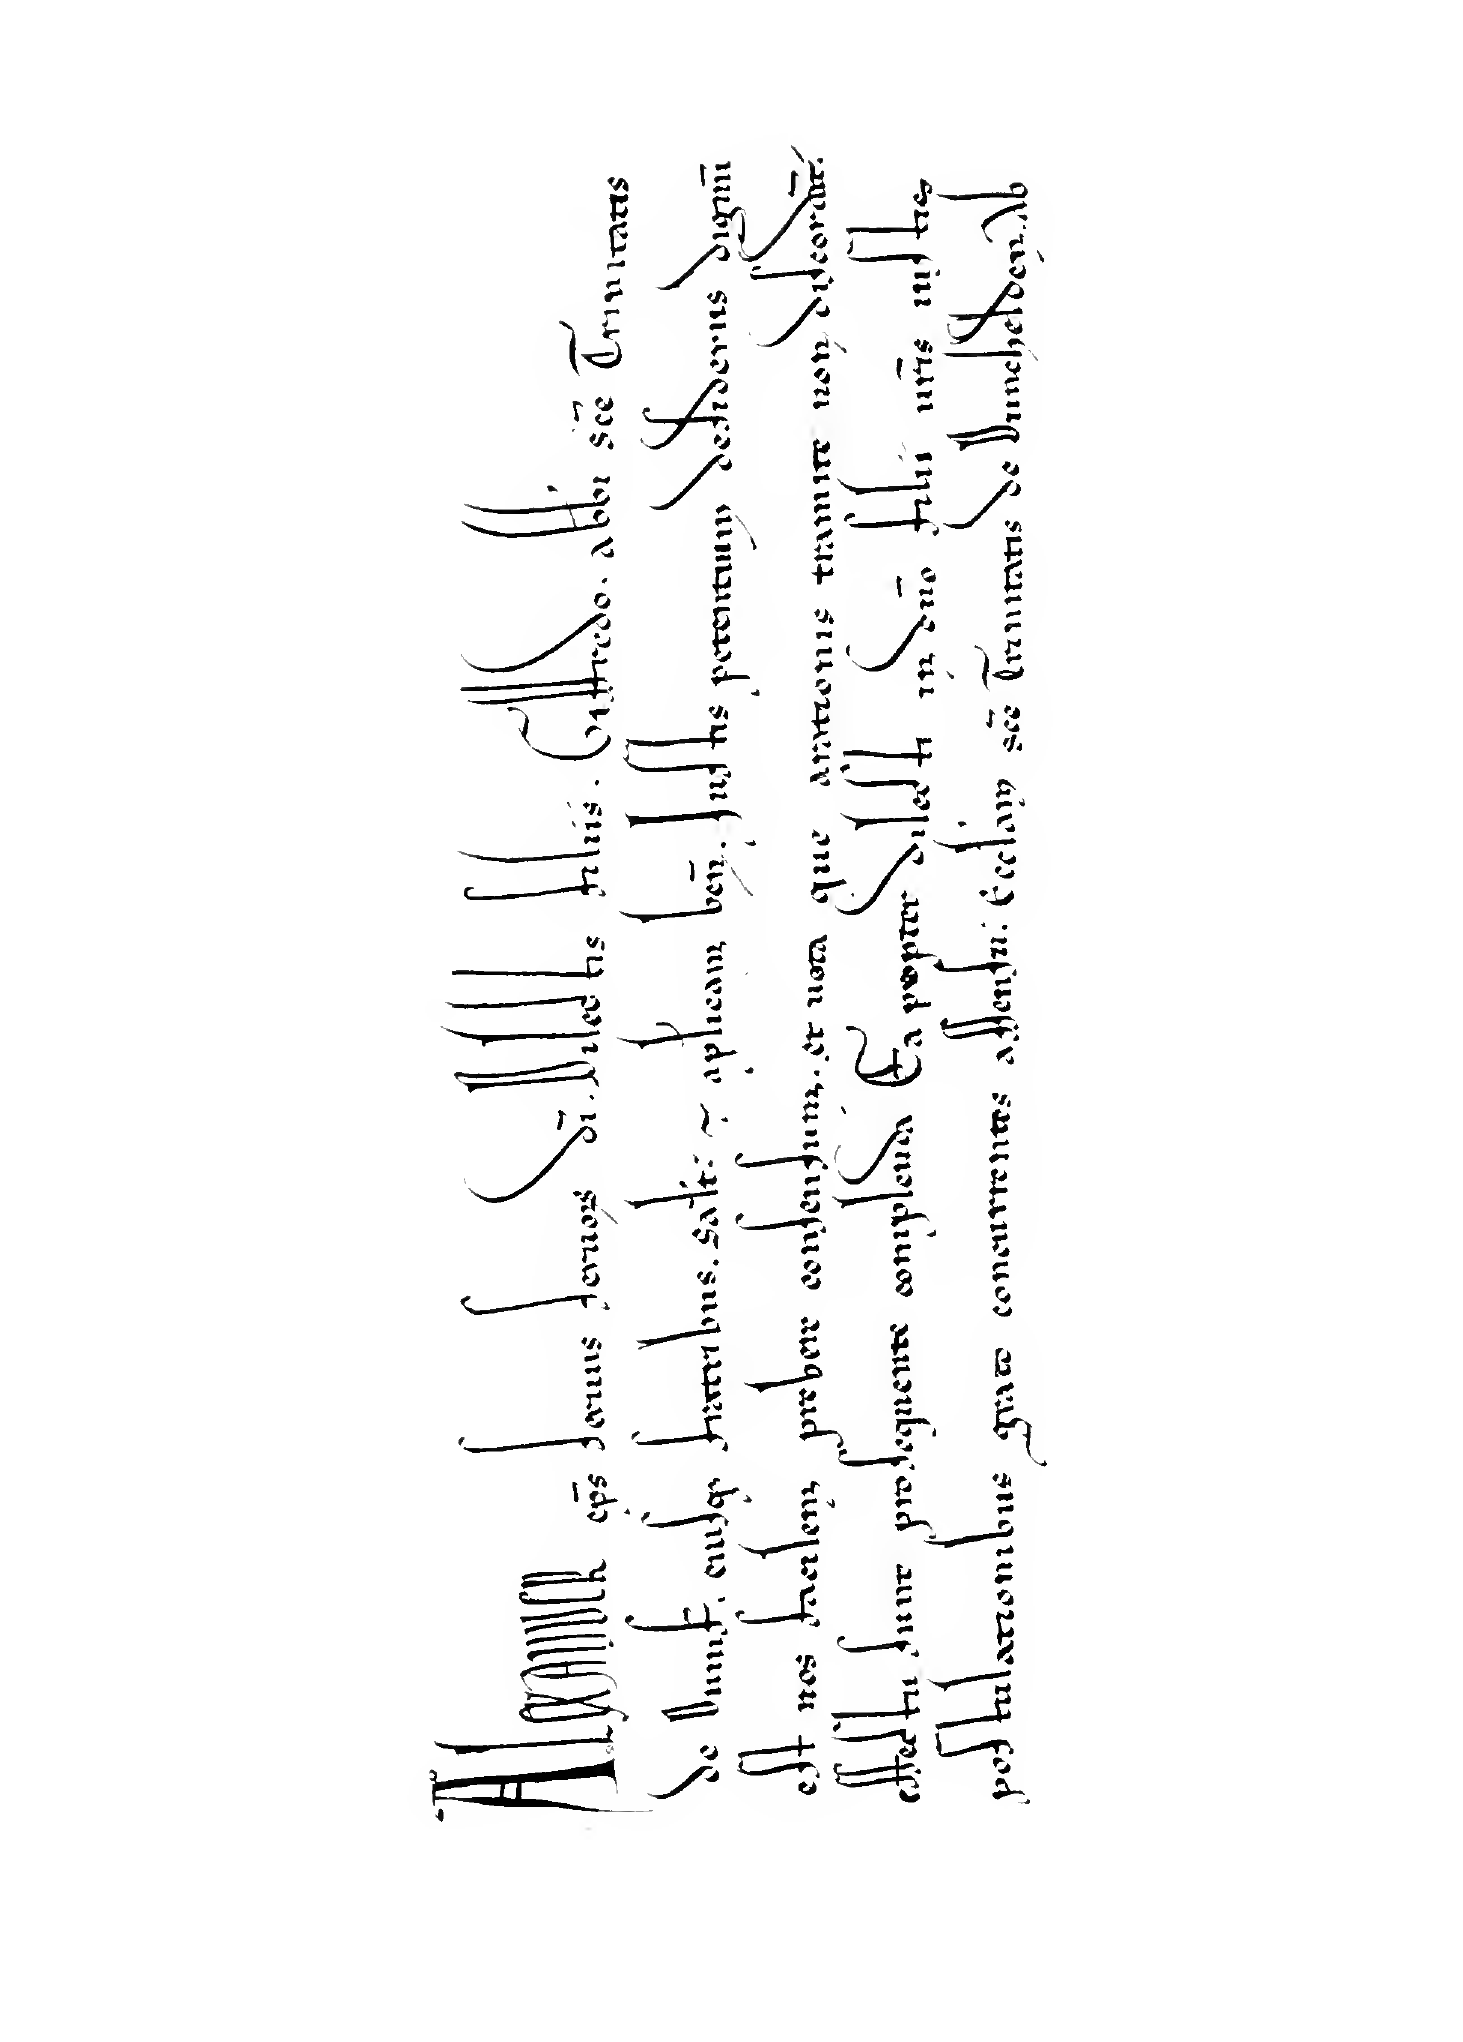 ALEXANDER ep̄s seruus seruoꝝ dī. Dilectis filiis. Gaufredo. abbi sc̄e Trinitatis
de Dunif. eiusq; fratribus. Salt̄. ⁊ aplicam ben̄. Iustis petentium desideriis dignū
est nos facilem prebere consensum. et uota que arationis tramite non discordāt.
effectu sunt prosequente complenda Ea propter dilecti in dn̄o filii urīs iustis
postulationibus grato concurrentes assensu. Ecclam sc̄e Trinitatis de Dunfcheldyn. Ab